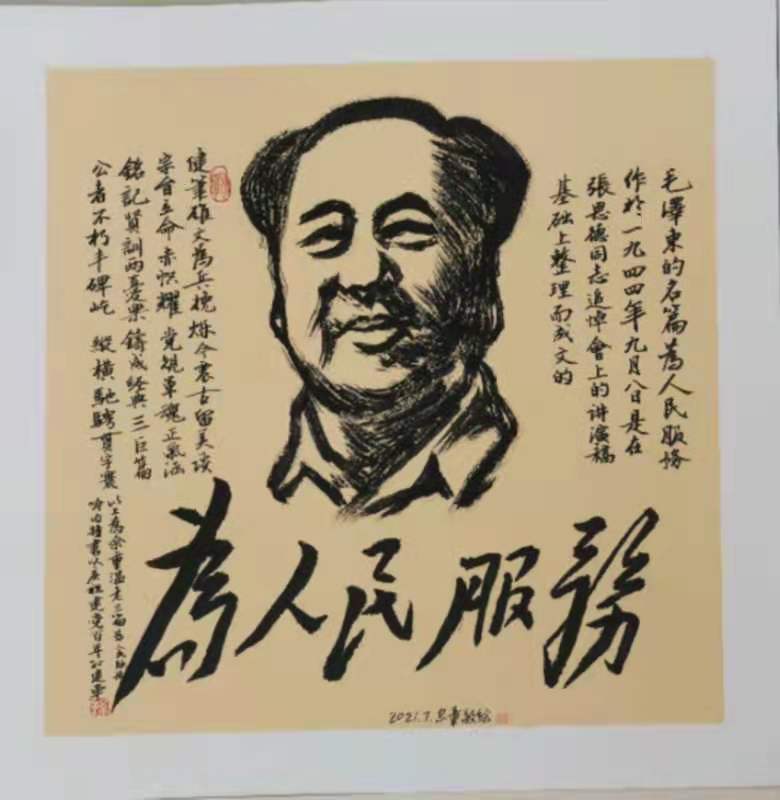 毛澤東的名篇為人民服務
作於一九四四年九月八日是在
張思德同志追悼會上的講演稿
基础上整理而成文的
健筆雄文為兵挽 烁今震古留美谈
宗旨立命赤帜耀 党军魂正氣涵
銘記賢訓两憂果 鑄成经典三巨篇
公者不朽丰碑屹 縱橫馳騁貫宇寰
以上為余重温老三篇
書以庆祝建党百年
為人民服務
2021.7.敬绘